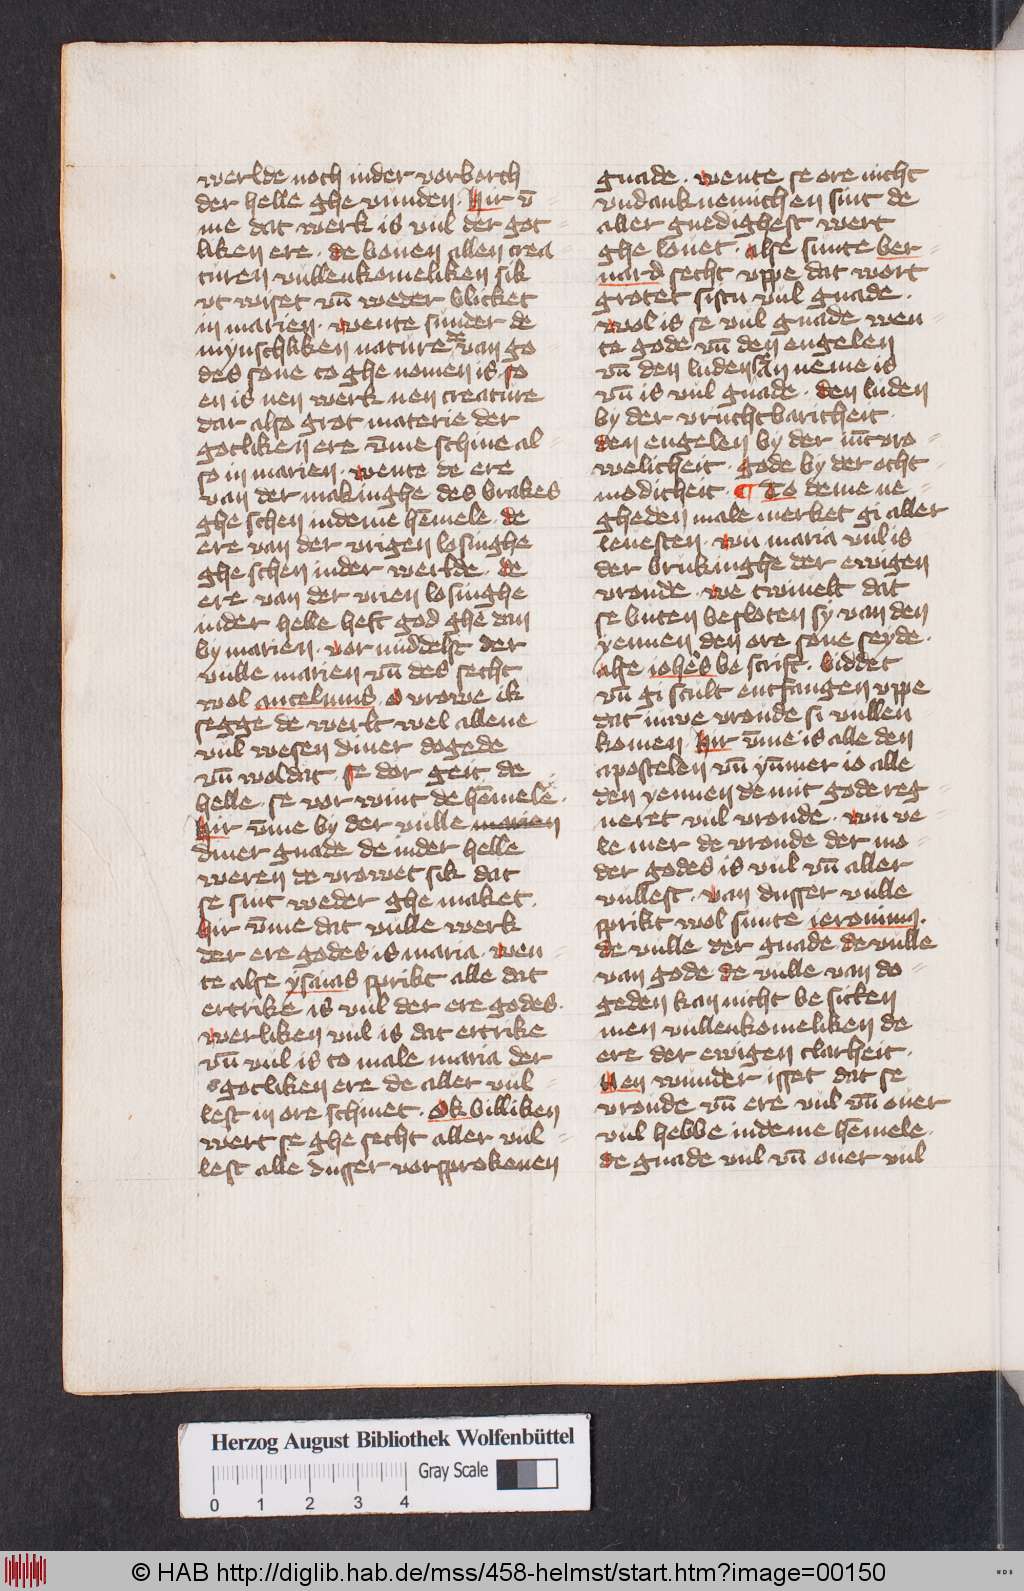 werlde noch inder vorborch
der helle ghe vunden. Hir v̄
me dat werk is vul der got
liken ere. de bouen allen crea
turen vullenkomeliken sik
vt wiset vn̄ weder blicket
in marien. wente sunder de
mynschliken nature van go
des sone to ghe nomen is. so
en is nen werk nen creature
dar also grot materie der
gotliken ere v̄me schine al
so in marien. wente de ere
van der makinghe des brakes
ghe schen indeme hēmele. de
ere van der vrigen losinghe
ghe schen inder werlde. de
ere van der vrien losinghe
inder helle heft god ghe dan
by marien. vormiddelst der
vulle marien vn̄ des secht
wol ancelmus. O vrowe ik
segge de werlt wel allene
vul wesen diner dogede
vn̄ woldat. se dor geit de
helle. se vor wint de hēmele.
Hir v̄me by der vulle marien
diner gnade de inder helle
weren de vrowet sik dat
se sint weder ghe maket.
Hir v̄me dat vulle werk
der ere godes is maria. wen
te alse ysaias sprikt alle dat
ertrike is vul der ere godes.
werliken vul is dat ertrike
vn̄ vul is to male maria der
gotliken ere de aller vul
lest in ore schinet. Ok billiken
wert se ghe secht aller vul
lest alle dusser vorsprokenen
gnade. wente se ore nicht
vndanknemichen sint de
aller gnedighest wert
ghe louet. alse sunte ber
nard secht vppe dat wort
grotet sistu vul gnade.
wol is se vul gnade wen
te gode vn̄ den engelen
vn̄ den luden An neme is
vn̄ is vul gnade. den luden
by der vruchtbaricheit.
den engelen by der iūcvro
welicheit. gode by der oth
modicheit. ¶ To deme ne
gheden male merket gi aller
leuesten. wu maria vul is
der brukinghe der ewigen
vronde. we twiuelt dat
se buten besloten sy van den
yennen den ore sone seyde.
alse iohēs be scrift. biddet
vn̄ gi scult entfangen vppe
dat iuwe vronde si vullen
komen. Hir v̄me is alle den
apostelen vn̄ yūmer io alle
den yennen de mit gode reg
neret vul vronde. wu ve
le mer de vronde der mo
der godes is vul vn̄ aller
vullest. van dusser vulle
sprikt wol sunte ieronimus.
de vulle der gnade de vulle
van gode de vulle van do
geden kan nicht be sicken
men vullenkomeliken de
ere der ewigen clarheit.
Nen wunder isset dat se
vronde vn̄ ere vul vn̄ ouer
vul hebbe indeme hēmele.
de gnade vul vn̄ ouer vul
Herzog August Bibliothek Wolfenbüttel
Gray Scale
0 1 2 3 4
© HAB http://diglib.hab.de/mss/458-helmst/start.htm?image=00150